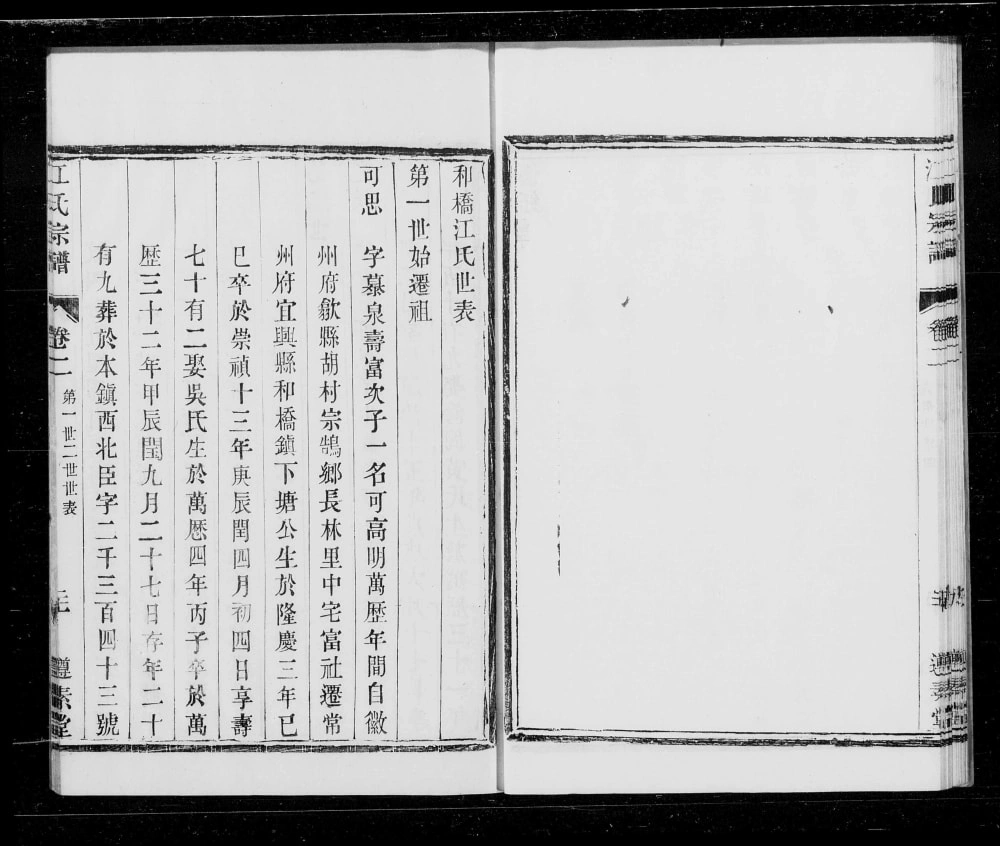 和橋江氏世表
第一世始遷祖
可思　字慕泉壽富次子一名可高明萬歷年間自徽
州府歙縣胡村宗鵠鄉長林里中宅富社遷常
州府宜興縣和橋鎮下塘公生於隆慶三年已
巳卒於崇禎十三年庚辰閏四月初四日享壽
七十有二娶吳氏生於萬歷四年丙子卒於萬
歷三十二年甲辰閏九月二十七日存年二十
有九葬於本鎮西北臣字二千三百四十三號
江氏宗譜　卷二　第一世二世世表　遵素堂